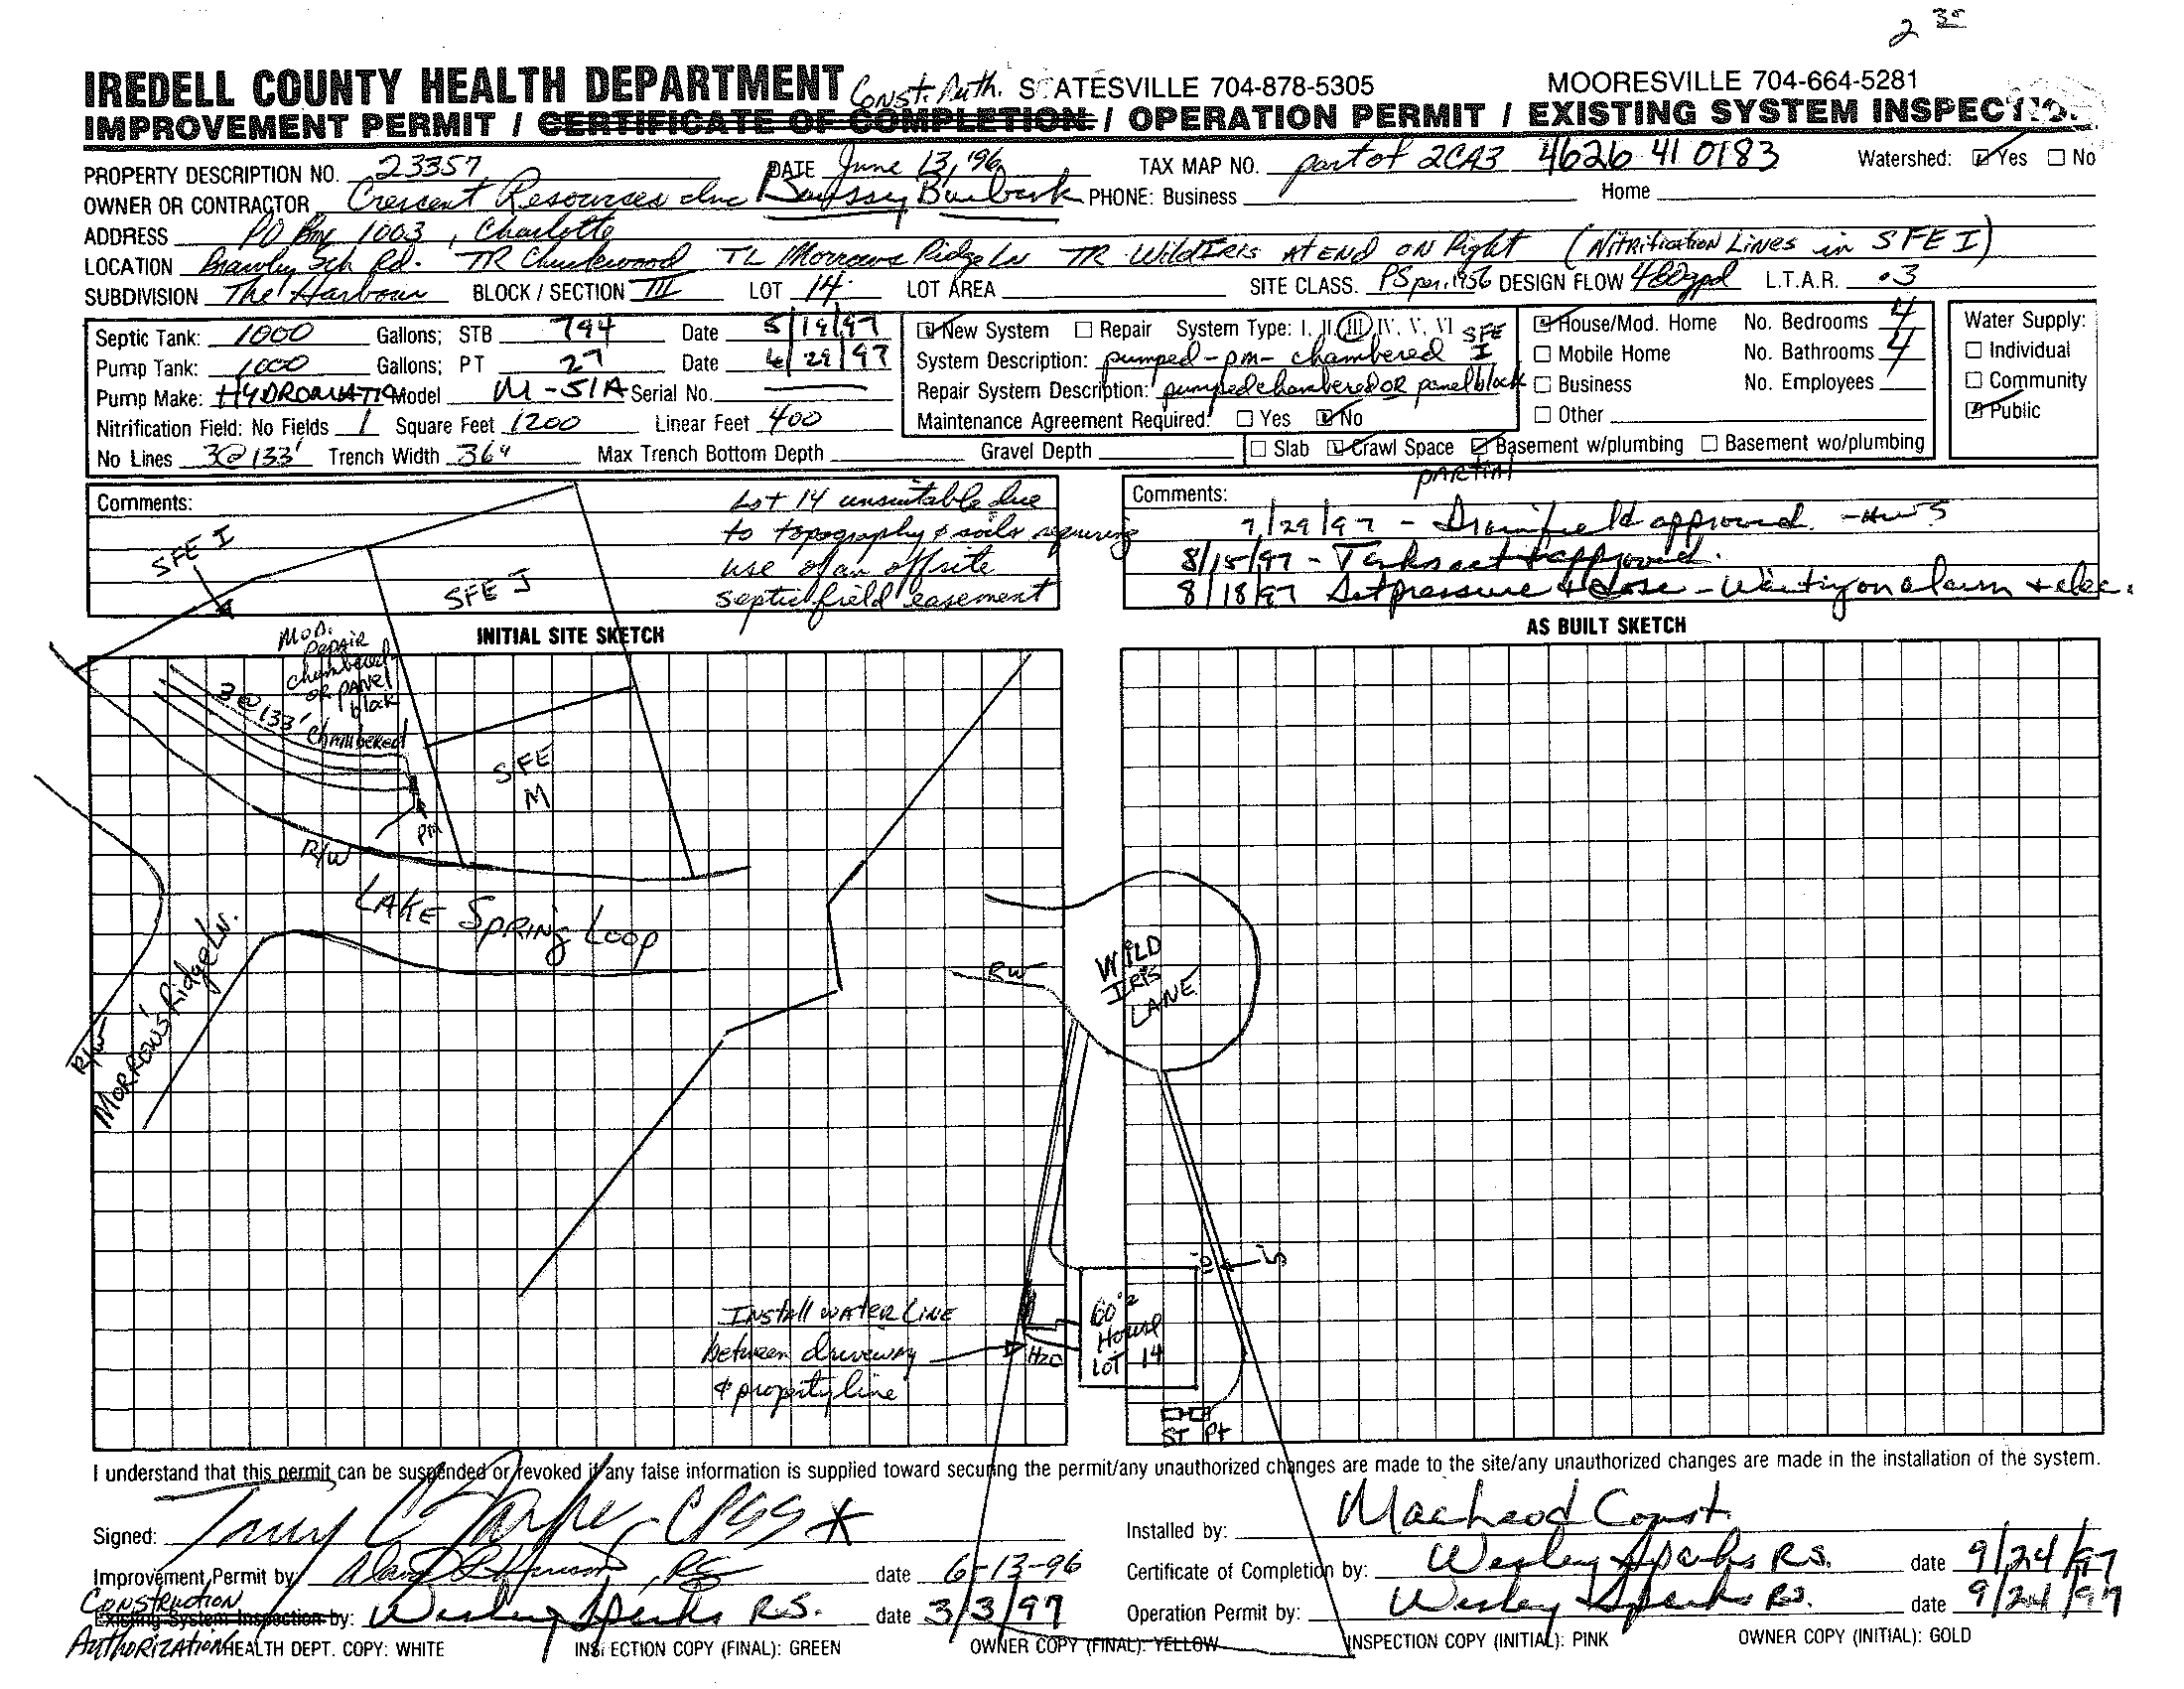 2 35
IREDELL COUNTY HEALTH DEPARTMENT Const. Auth. STATESVILLE 704-878-5305 MOORESVILLE 704-664-5281
IMPROVEMENT PERMIT / CERTIFICATE OF COMPLETION / OPERATION PERMIT / EXISTING SYSTEM INSPECTION
PROPERTY DESCRIPTION NO. 23357 DATE June 13, '96 TAX MAP NO. part of 2CA3 4626 41 0183 Watershed: ☑ Yes ☐ No
OWNER OR CONTRACTOR Crescent Resources Inc Burbank PHONE: Business Home
ADDRESS PO Box 1003, Charlotte
LOCATION Brawley Sch Rd. TR Chuckwood TL Morrows Ridge Ln TR Wild Iris At END ON Right (Nitrification Lines in SFE I)
SUBDIVISION The Harbour BLOCK / SECTION III LOT 14 LOT AREA SITE CLASS. PS per .1956 DESIGN FLOW 480gpd L.T.A.R. .3
Septic Tank: 1000 Gallons; STB 794 Date 5/19/97
Pump Tank: 1000 Gallons; PT 27 Date 4/29/97
Pump Make: HYDROMATIC Model M-51A Serial No.
Nitrification Field: No Fields 1 Square Feet 1200 Linear Feet 400
No Lines 3@133' Trench Width 36" Max Trench Bottom Depth Gravel Depth
☑ New System ☐ Repair System Type: I, II, III, IV, V, VI SFE
System Description: pumped-pm-chambered I
Repair System Description: pumped chambered OR panel block
Maintenance Agreement Required: ☐ Yes ☑ No
☑ House/Mod. Home No. Bedrooms 4
☐ Mobile Home No. Bathrooms 4
☐ Business No. Employees
☐ Other
☐ Slab ☑ Crawl Space ☑ Basement w/plumbing ☐ Basement wo/plumbing
PARTIAL
Water Supply:
☐ Individual
☐ Community
☑ Public
Comments: Lot 14 unsuitable due
to topography & soils requiring
use of an offsite
septic field easement
Comments:
7/29/97 - Drainfield approved. -HWS
8/15/97 - Tank set & approved.
8/18/97 Set pressure & dose - Waiting on alarm & elec.
INITIAL SITE SKETCH
AS BUILT SKETCH
SFE I
SFE J
Mod.
Repair
chambered
or PANEL
block
3@133'
Chambered
SFE
M
PM
R/W
LAKE SPRING LOOP
Morrow's Ridge Ln.
R/W
RW
WILD
IRIS
LANE
Install WATER LINE
between driveway
& property line
H2O
60'²
House
LOT 14
ST Pt
I understand that this permit can be suspended or revoked if any false information is supplied toward securing the permit/any unauthorized changes are made to the site/any unauthorized changes are made in the installation of the system.
Signed: CPSS*
Installed by: Const.
Improvement Permit by: , RS date 6-13-96
Certificate of Completion by: Wesley Sparks R.S. date 9/24/97
CONSTRUCTION
Existing System Inspection by: Wesley Sparks R.S. date 3/3/97
Operation Permit by: Wesley Sparks RS. date 9/24/97
AUTHORIZATION HEALTH DEPT. COPY: WHITE INSPECTION COPY (FINAL): GREEN OWNER COPY (FINAL): YELLOW INSPECTION COPY (INITIAL): PINK OWNER COPY (INITIAL): GOLD